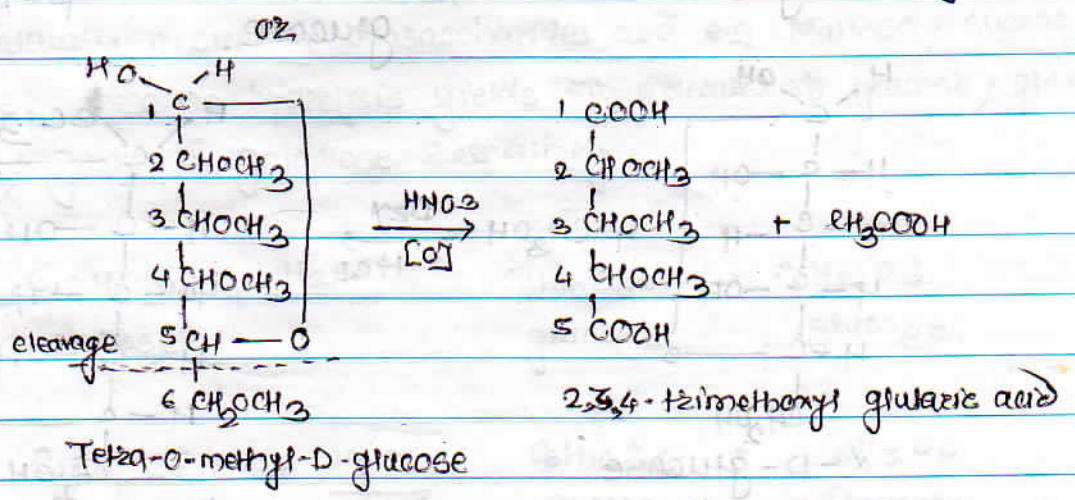 or,
HO H
1 C
2 CHOCH3
3 CHOCH3
4 CHOCH3
cleavage 5 CH — O
6 CH2OCH3
Tetra-O-methyl-D-glucose
HNO3
[O]
1 COOH
2 CHOCH3
3 CHOCH3 + CH3COOH
4 CHOCH3
5 COOH
2,3,4-trimethoxyl glutaric acid